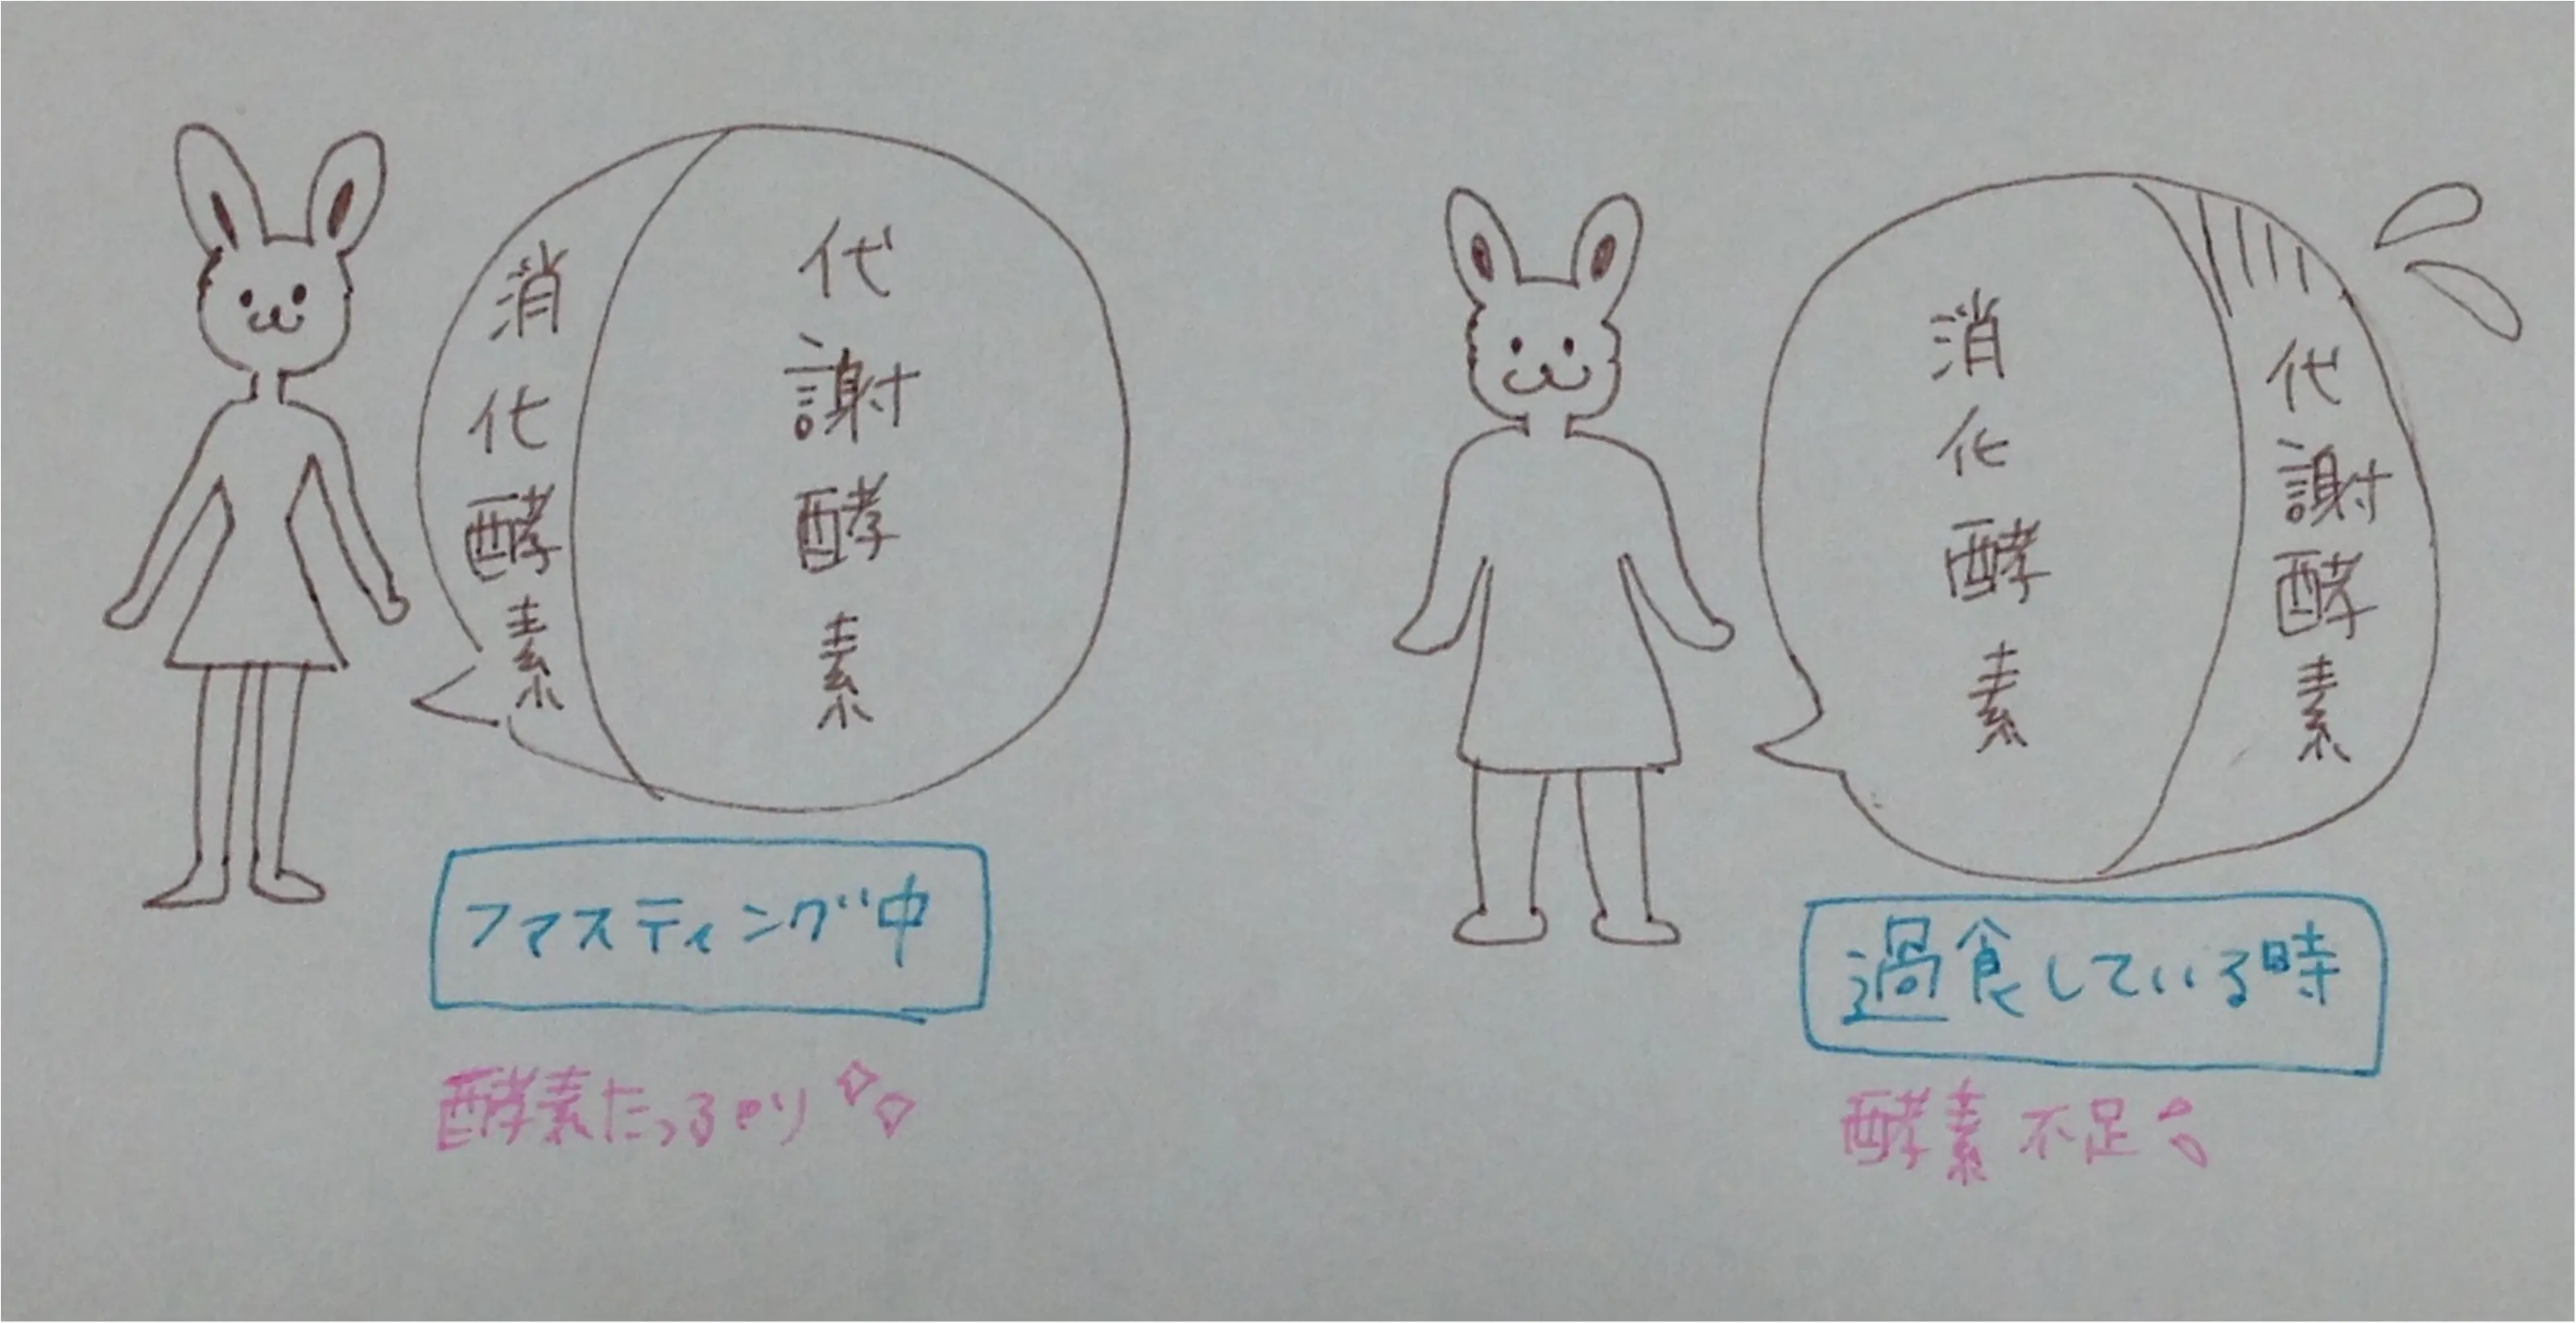 消化酵素
代謝酵素
ファスティング中
酵素たっぷり
消化酵素
代謝酵素
過食している時
酵素不足